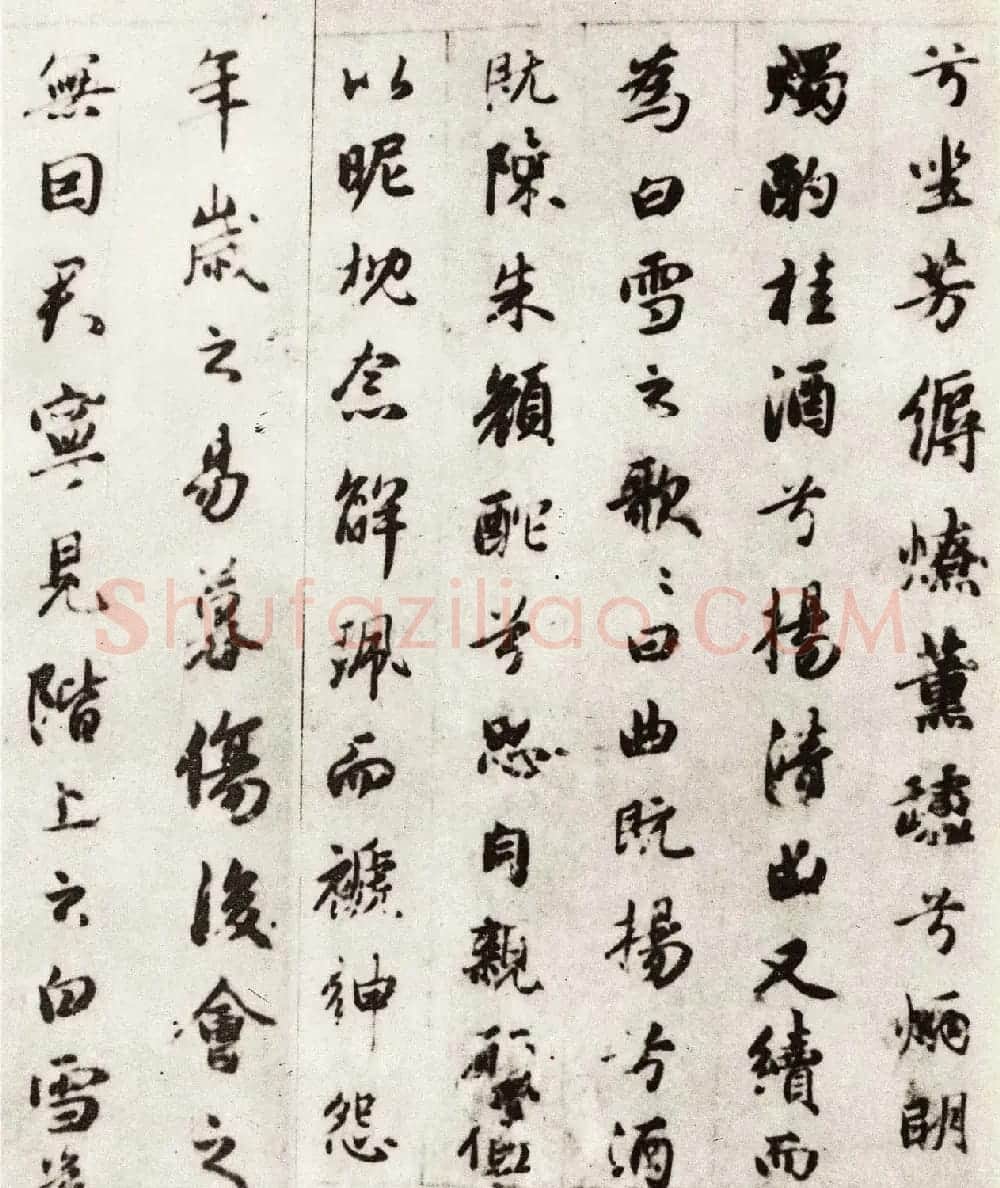 兮坐芳縟燎薰爐兮炳朙
燭酌桂酒兮揚清曲又續而
為白雪之歌〻曰曲既揚兮酒
既陳朱顏酡兮思自親
以昵枕念解珮而褫紳怨
年歲之易暮傷後會之
無因君寧見階上之白雪
shufaziliao.COM